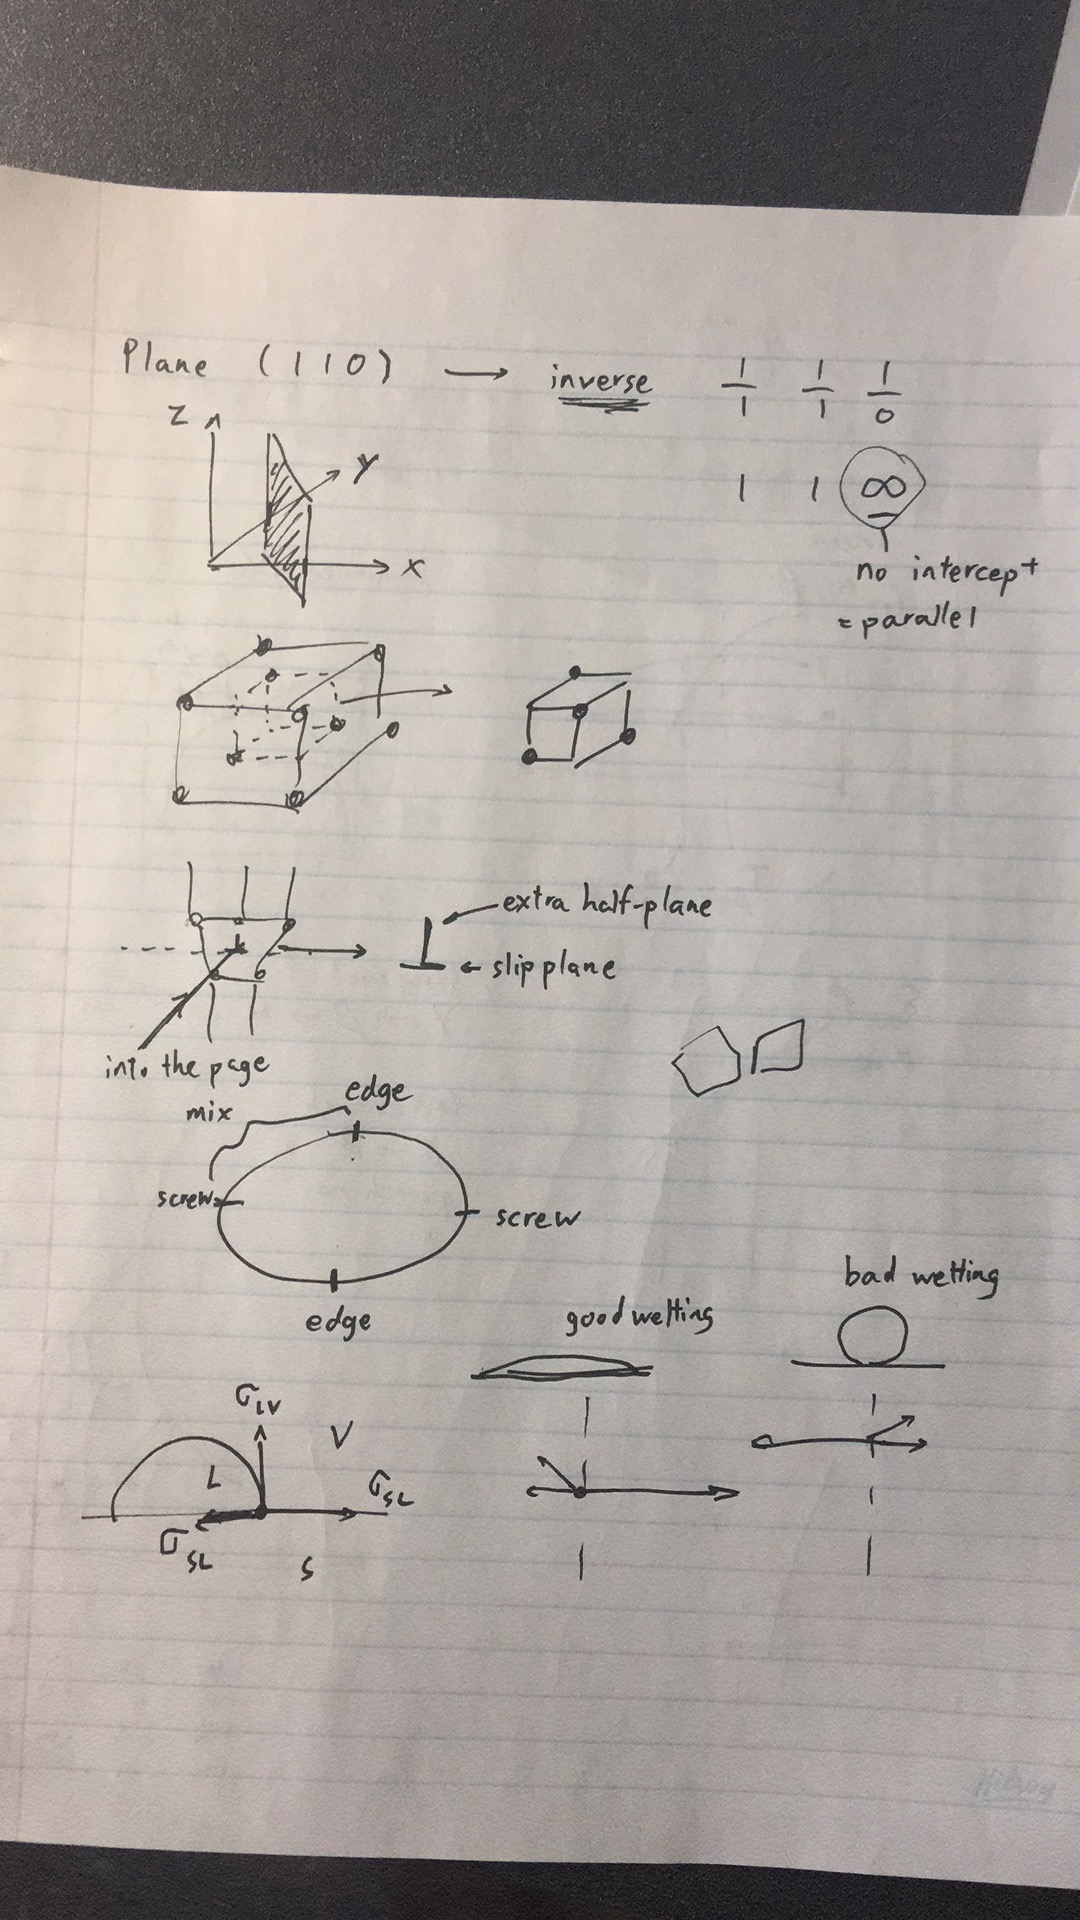 Plane (110) → inverse 1/1 1/1 1/0
Z
Y
X
1 1 ∞
no intercept
= parallel
extra half-plane
slip plane
into the page
mix
edge
screw
screw
edge
good wetting
bad wetting
σLV
V
L
σSL
σSL
S
Hilroy